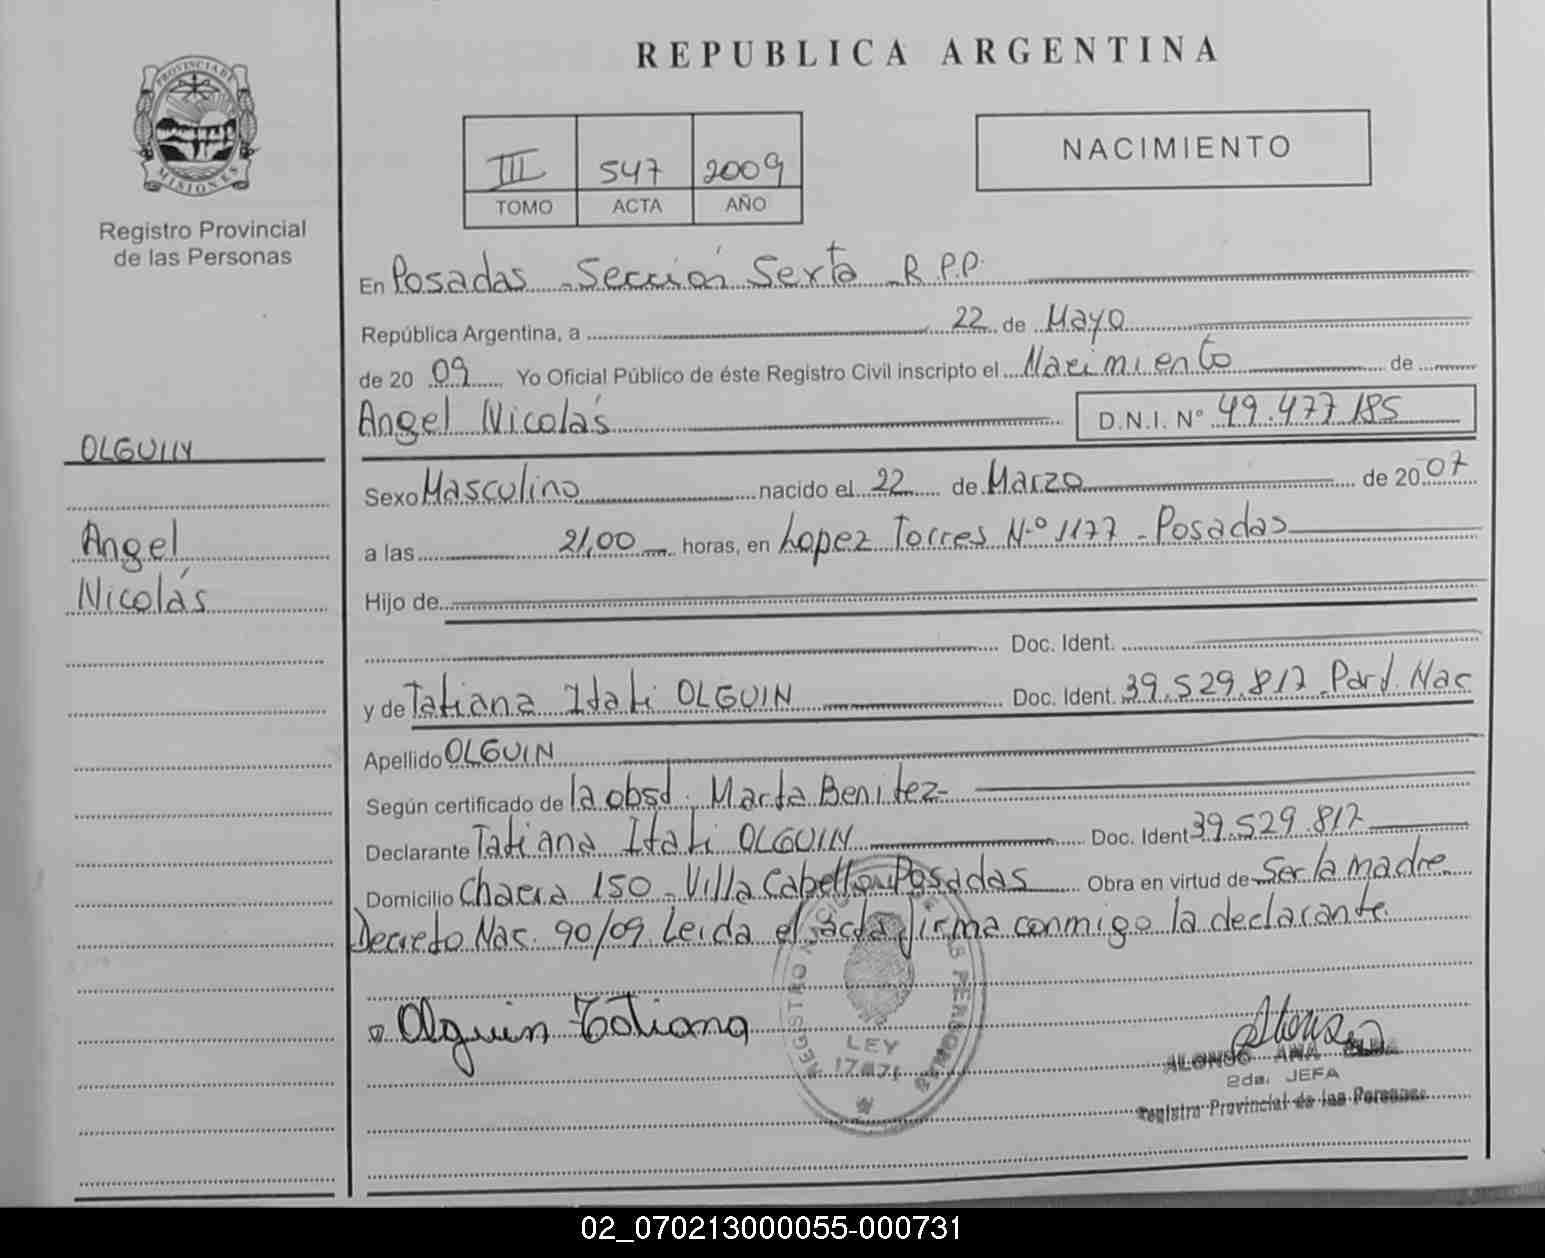 REPUBLICA ARGENTINA
PROVINCIA DE
MISIONES
Registro Provincial
de las Personas
III 547 2009
TOMO ACTA AÑO
NACIMIENTO
En Posadas - Sección Sexta - R.P.P.
República Argentina, a 22 de Mayo
de 20 09 Yo Oficial Público de éste Registro Civil inscripto el Nacimiento de
Angel Nicolás D.N.I. Nº 49.477.185
OLGUIN
Angel
Nicolás
Sexo Masculino nacido el 22 de Marzo de 20 07
a las 21,00 horas, en Lopez Torres Nº 1177 - Posadas
Hijo de
Doc. Ident.
y de Tatiana Itati OLGUIN Doc. Ident. 39.529.817 Part. Nac
Apellido OLGUIN
Según certificado de la obst. Marta Benitez
Declarante Tatiana Itati OLGUIN Doc. Ident 39.529.817
Domicilio Chacra 150 - Villa Cabello - Posadas Obra en virtud de Ser la madre
Decreto Nac. 90/09 Leida el acta firma conmigo la declarante
Olguin Tatiana
REGISTRO DE LAS PERSONAS
LEY
17.671
ALONSO ANA
2da. JEFA
Registro Provincial de las Personas
02_070213000055-000731